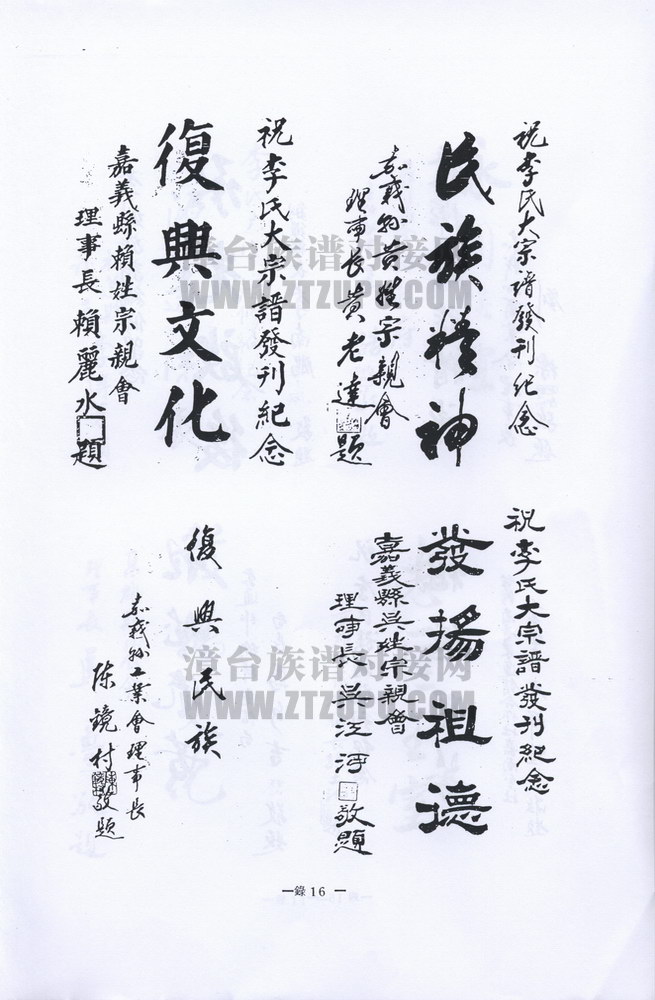 祝李氏大宗譜發刊紀念
民族精神
嘉義縣黃姓宗親會
理事長黃老達題
祝李氏大宗譜發刊紀念
復興文化
嘉義縣賴姓宗親會
理事長賴麗水題
祝李氏大宗譜發刊紀念
發揚祖德
嘉義縣吳姓宗親會
理事長吳江河敬題
復興民族
嘉義縣工業會理事長
陳鏡村敬題
漳台族谱对接网
WWW.ZTZUPU.COM
漳台族谱对接网
WWW.ZTZUPU.COM
—錄16—